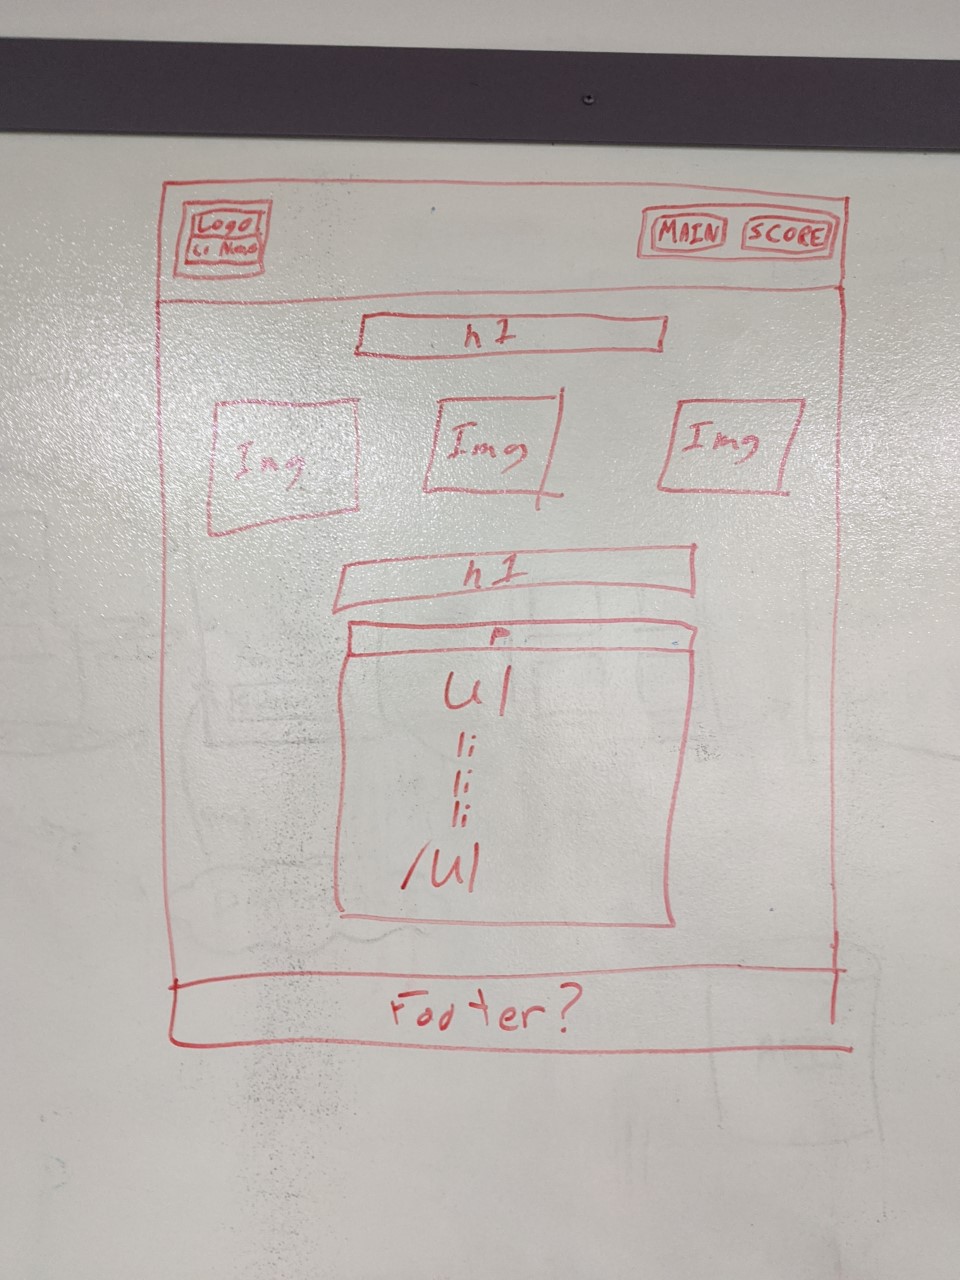 Logo
MAIN SCORE
h1
Img Img Img
h1
P
ul
li
li
li
/ul
Footer?